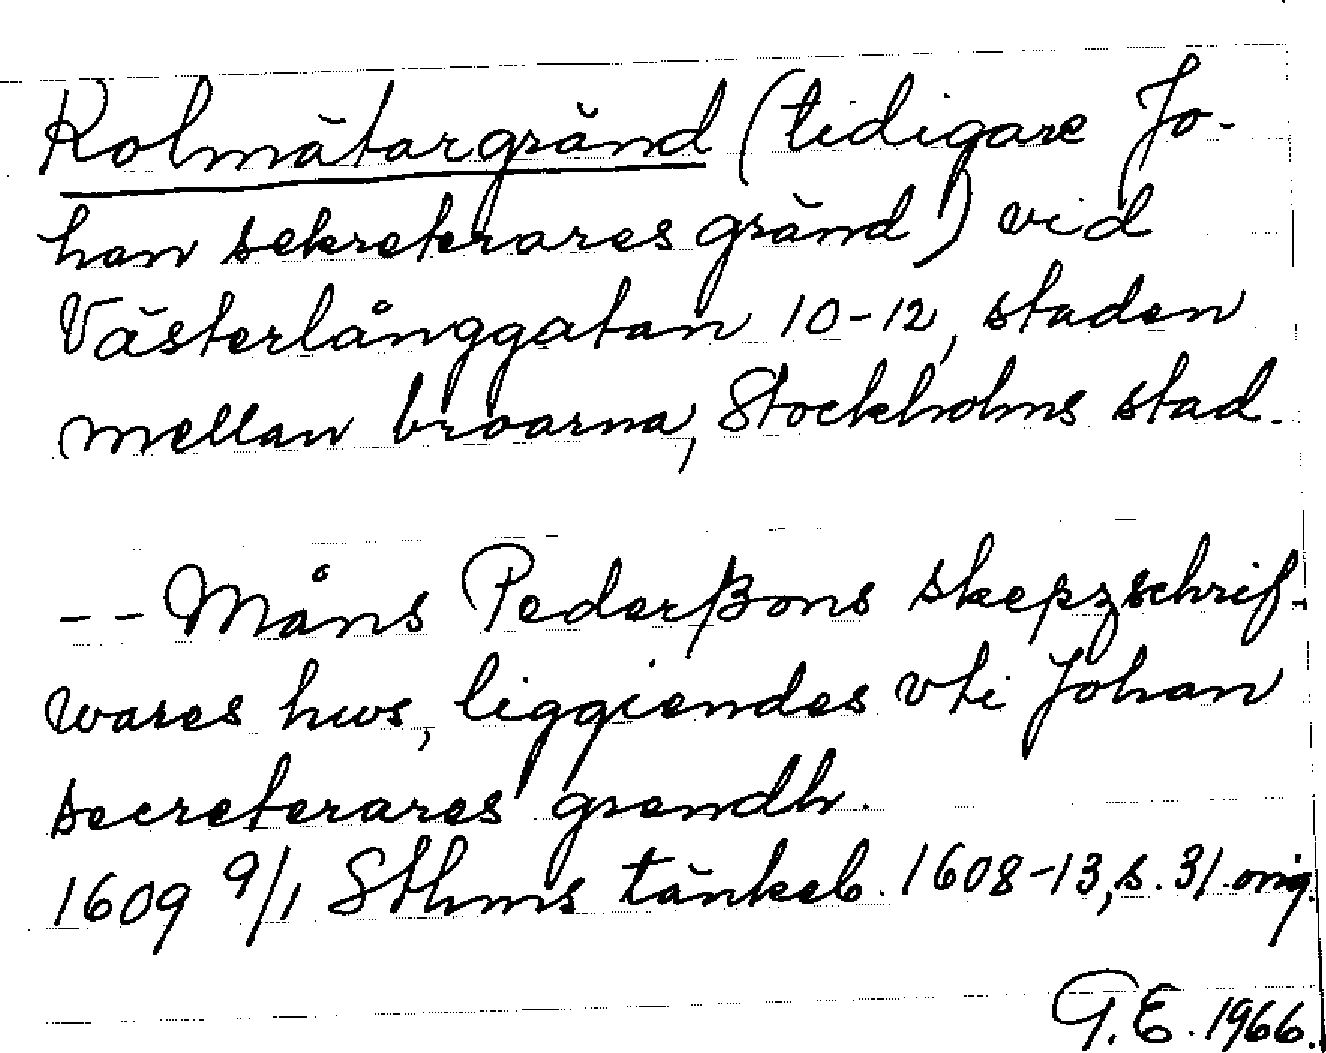 Kolmätargränd (tidigare Jo-
han sekreterares gränd) vid
Västerlånggatan 10-12, staden
mellan broarna, Stockholms stad.
-- Måns Pederßons skepzschrif-
wares hws, liggiendes vti Johan
secreterares grendh.
1609 9/1 Sthms tänkeb. 1608-13, s. 31. orig.
G.E. 1966.